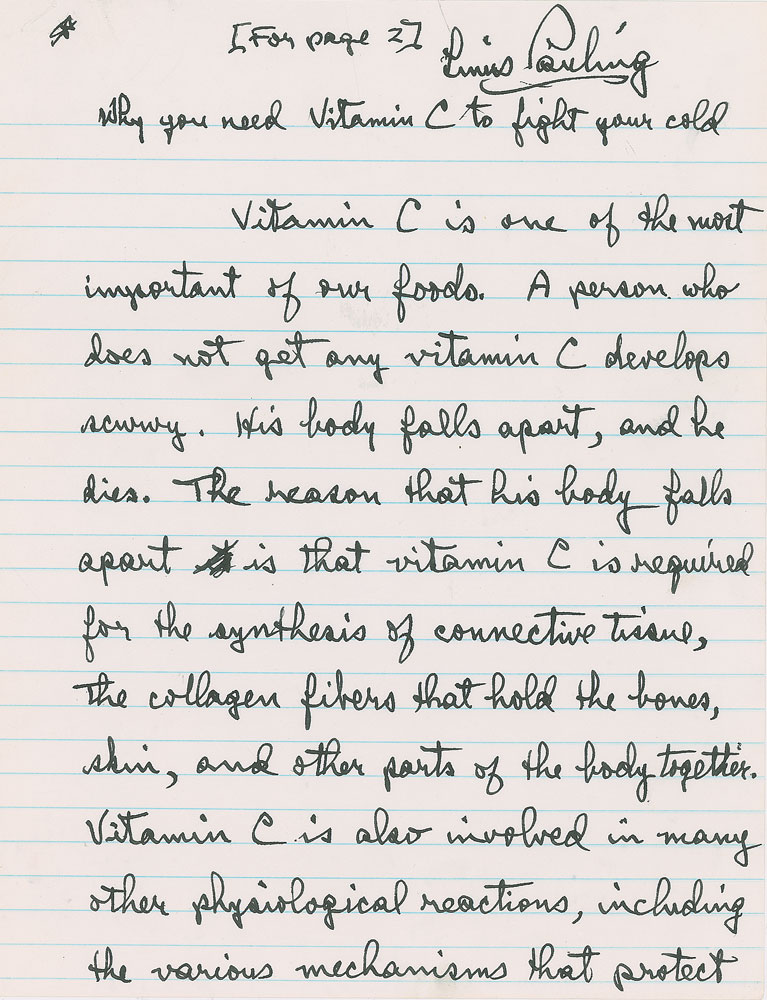 [For page 2] Linus Pauling
Why you need Vitamin C to fight your cold
Vitamin C is one of the most
important of our foods. A person who
does not get any vitamin C develops
scurvy. His body falls apart, and he
dies. The reason that his body falls
apart is that vitamin C is required
for the synthesis of connective tissue,
the collagen fibers that hold the bones,
skin, and other parts of the body together.
Vitamin C is also involved in many
other physiological reactions, including
the various mechanisms that protect